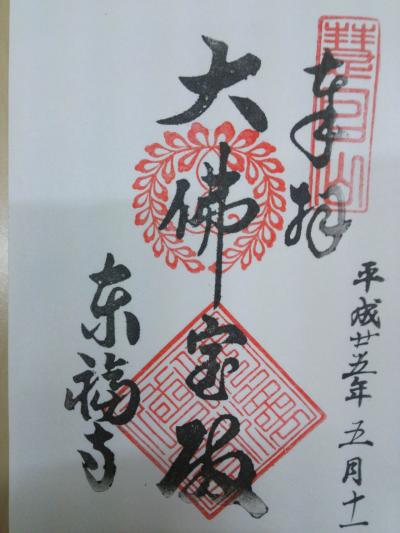 奉拝
平成廿五年五月十一
大佛宝殿
东福寺
慧日山